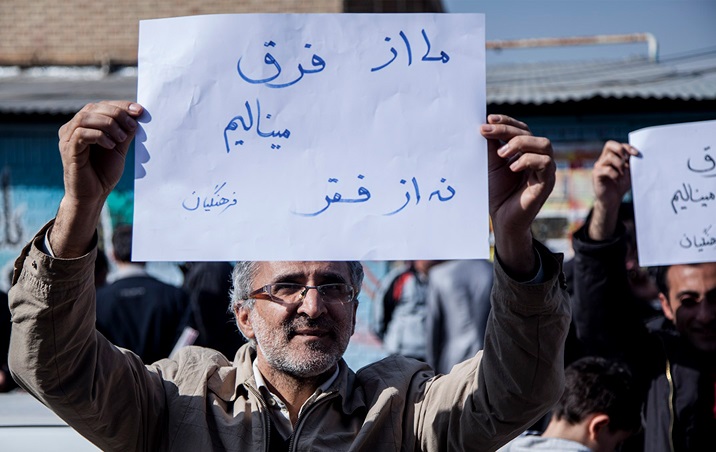 ما از فرق
مینالیم
نه از فقر
فرهنگیان
فرق
مینالیم
فرهنگیان